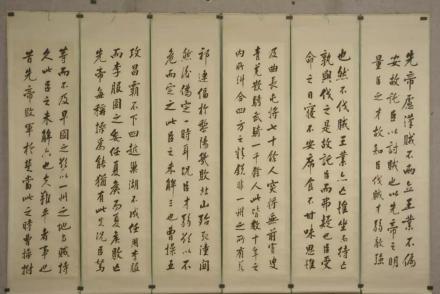 先帝慮漢賊不兩立王業不偏
安故託臣以討賊也以先帝之明
量臣之才故知臣伐賊才弱敵強
也然不伐賊王業亦亡惟坐而待亡
孰與伐之是故託臣而弗疑也臣受
命之日寢不安席食不甘味思惟
及曲長屯將七十餘人突將無前賨叟
青羌散騎武騎一千餘人此皆數十年之
內所糾合四方之精銳非一州之所有
祁連偪於黎陽幾敗北山殆死潼關
然後偽定一時耳況臣才弱而欲以不
危而定之此臣之未解三也曹操五
攻昌霸不下四越巢湖不成任用李服
而李服圖之委任夏侯而夏侯敗亡
先帝每稱操為能猶有此失況臣駑
等而不及早圖之欲以一州之地與賊持
久此臣之未解六也夫難平者事也
昔先帝敗軍於楚當此之時曹操拊